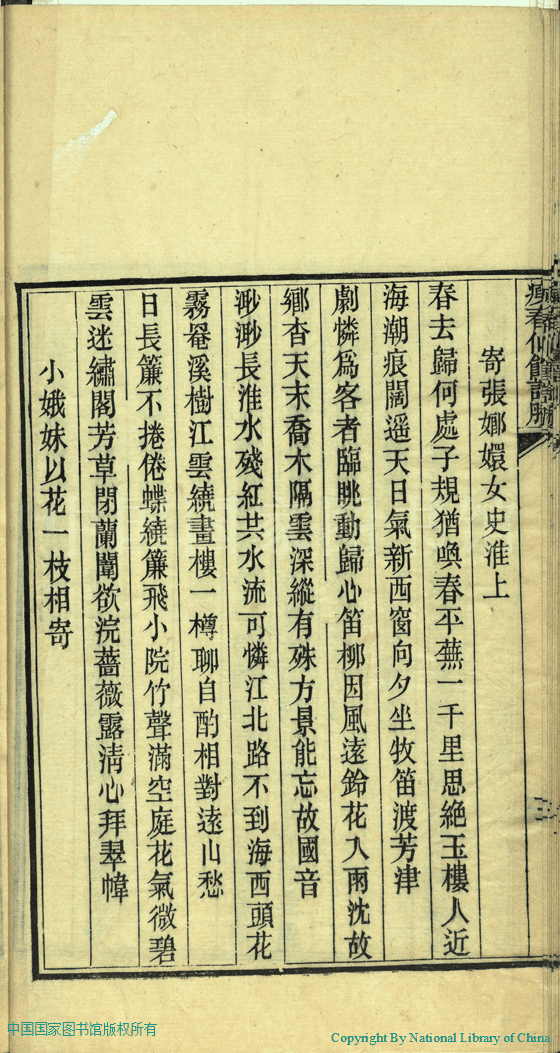 春仙館詩賸
寄張嫏嬛女史淮上
春去歸何處子規猶喚春平蕪一千里思絕玉樓人近
海潮痕闊遥天日氣新西窗向夕坐牧笛渡芳津
劇憐爲客者臨眺動歸心笛柳因風遠鈴花入雨沈故
鄉杳天末喬木隔雲深縱有殊方景能忘故國音
渺渺長淮水殘紅共水流可憐江北路不到海西頭花
霧罨溪樹江雲繞畫樓一樽聊自酌相對遠山愁
日長簾不捲倦蝶繞簾飛小院竹聲滿空庭花氣微碧
雲迷繡閣芳草閉蘭闈欲浣薔薇露淸心拜翠幃
小娥妹以花一枝相寄
中国国家图书馆版权所有
Copyright By National Library of China